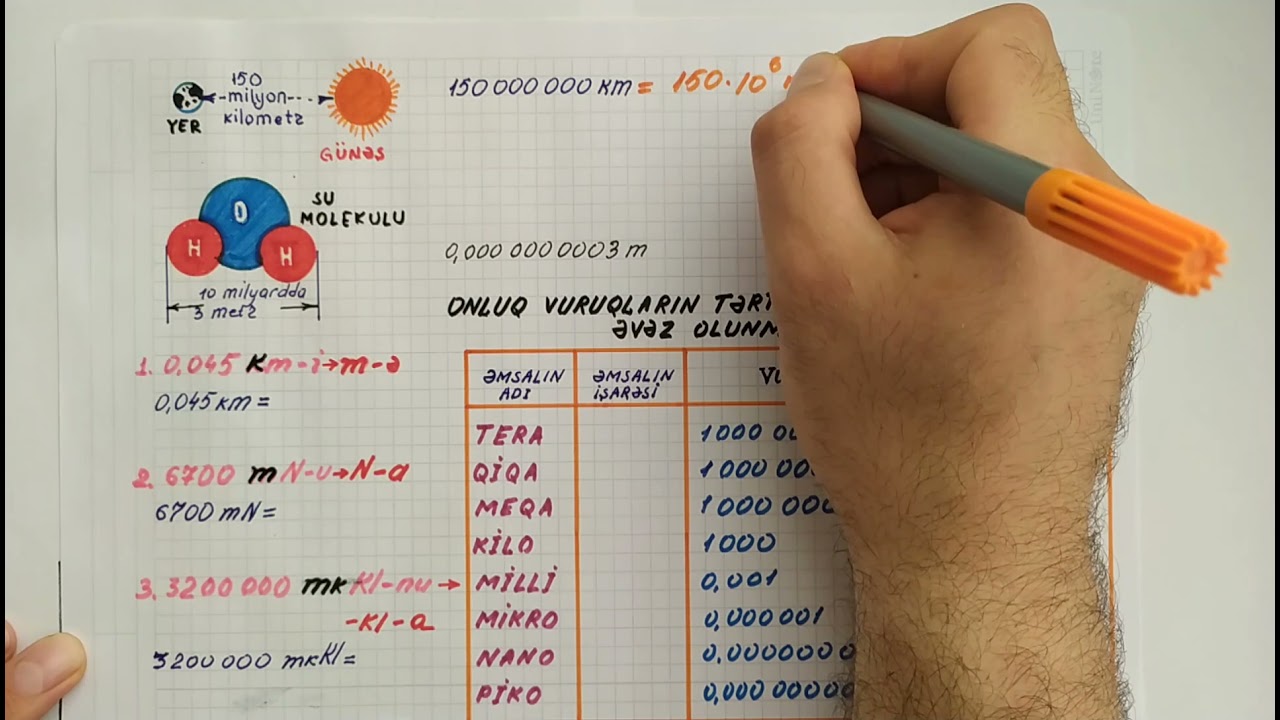 150
milyon
kilometr
YER
GÜNƏŞ
150 000 000 km = 150·10⁶
O
H
H
SU
MOLEKULU
10 milyardda
3 metr
0,000 000 0003 m
ONLUQ VURUQLARIN
ƏVƏZ
1. 0,045 km-i→m-ə
0,045 km =
2. 6700 mN-u→N-a
6700 mN =
3. 3200 000 mkKl-nu →
-Kl-a
3200 000 mkKl =
ƏMSALIN ADI
ƏMSALIN İŞARƏSİ
TERA
QİQA
MEQA
KİLO 1000
MİLLİ 0,001
MİKRO 0,000 001
NANO
PİKO